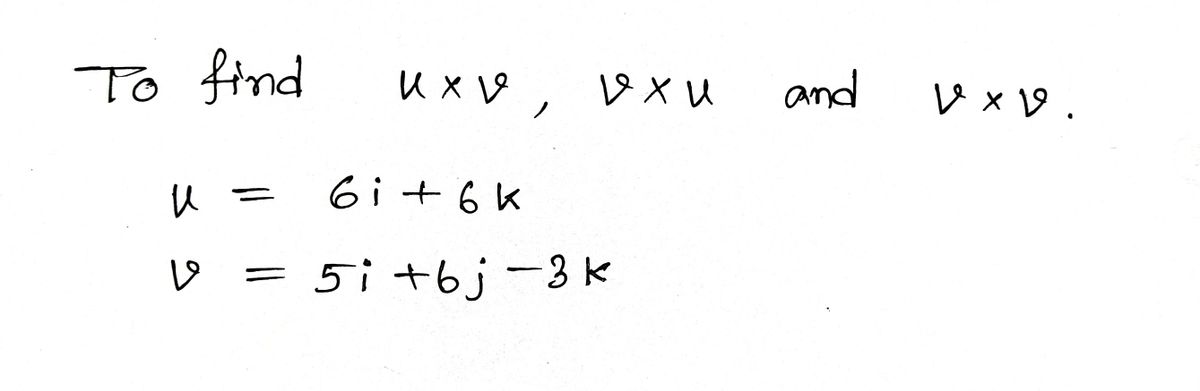 To find u × v, v × u and v × v.
u = 6i + 6k
v = 5i + 6j - 3k